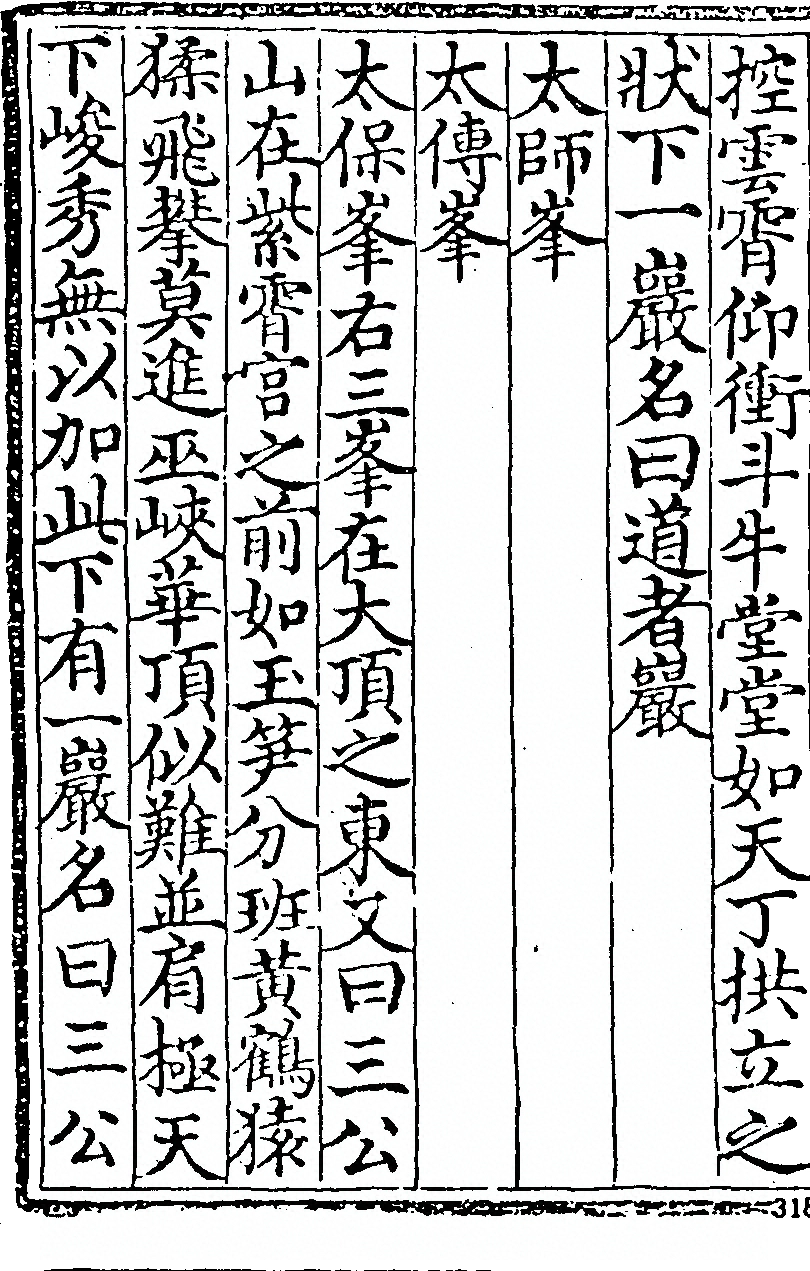 控雲霄仰衝斗牛堂堂如天丁拱立之
狀下一巖名曰道者巖
太師峯
太傅峯
太保峯右三峯在大頂之東又曰三公
山在紫霄宫之前如玉笋分班黄鶴猿
猱飛攀莫進巫峽華頂似難並肩極天
下峻秀無以加此下有一巖名曰三公
318